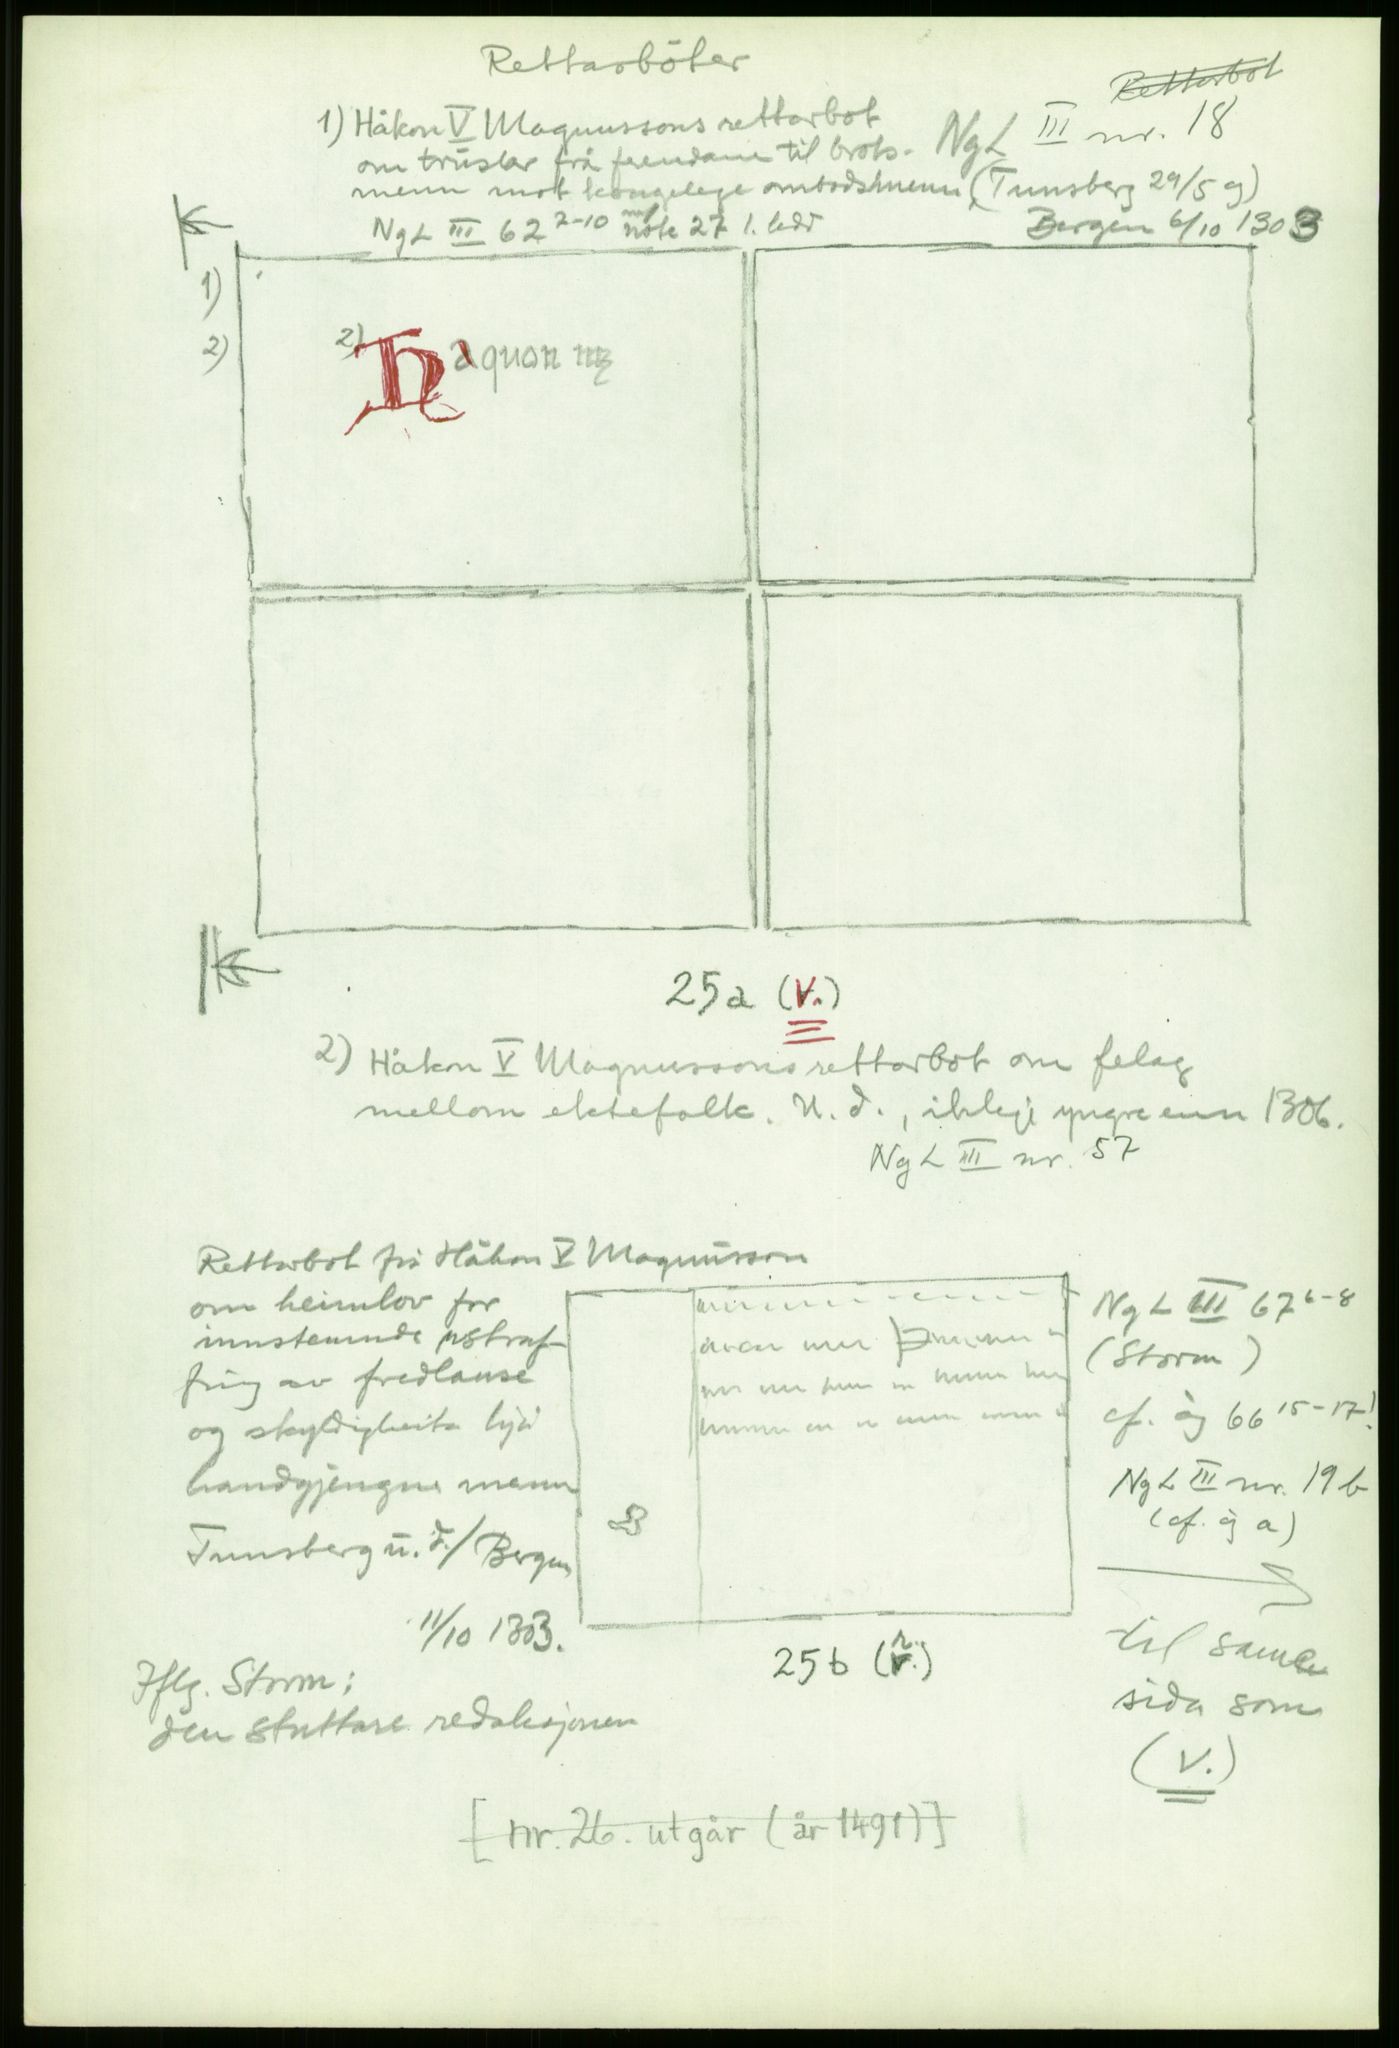 Rettarbøter
Rettarbot
1) Håkon V Magnussons rettarbot
NgL III nr. 18
om truslar frå frendane til brots-
menn mot kongelege ombodsmenn (Tunsberg 29/5 og)
NgL III 62 7-10 m/ note 27 1. ledd
Bergen 6/10 1303
1)
2)
2) Haquon mz
25a (v.)
2) Håkon V Magnussons rettarbot om felag
mellom ektefolk. U. d., ikkje yngre enn 1306.
NgL III nr. 57
Rettarbot frå Håkon V Magnusson
om heimlov for
innstemnde, straf-
fing av fredlause
og skyldigheita hjå
handgjengne menn
Tunsberg u. d./Bergen
11/10 1303.
Iflg. Storm:
den stuttare redaksjonen
NgL III 67 6-8
(Storm)
cf. òg 66 15-17!
NgL III nr. 19 b
(cf. òg a)
til same
sida som
(v.)
25b (r.)
[nr. 26. utgår (år 1491)]